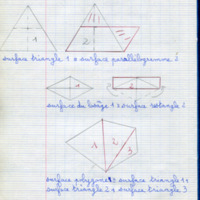 1
2
surface triangle 1 = surface parallélogramme 2
1
2
surface du losange 1 = surface rectangle 2
1
2
3
surface polygone = surface triangle 1 +
surface triangle 2 + surface triangle 3